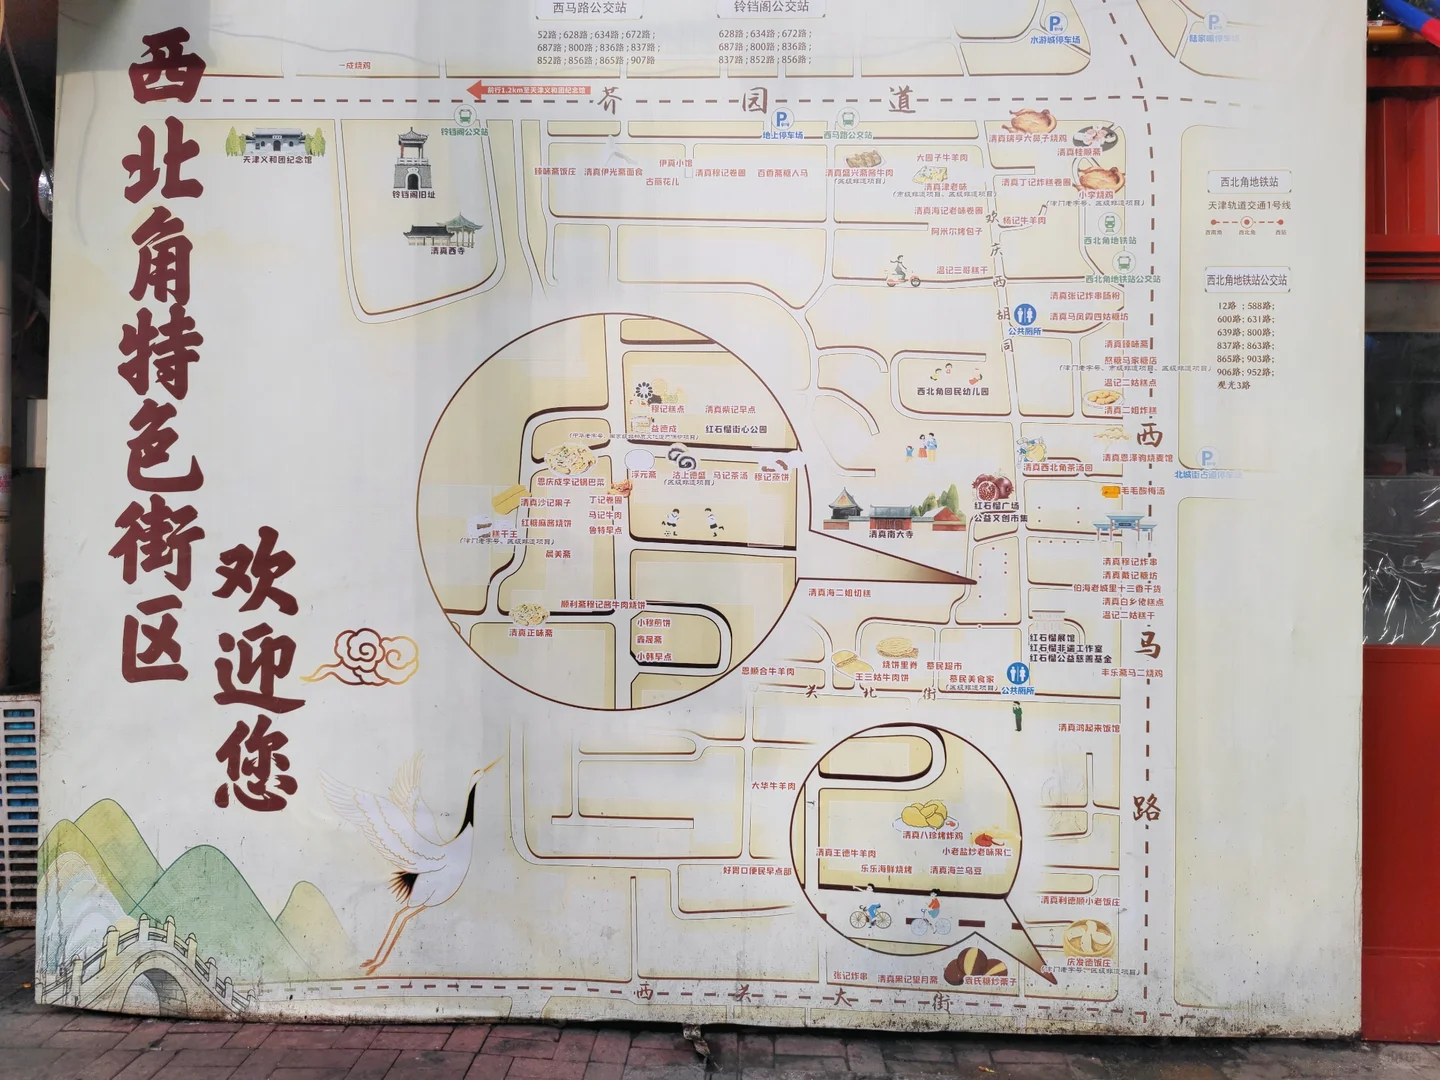 西北角特色街区
欢迎您
西马路公交站
52路；628路；634路；672路；
687路；800路；836路；837路；
852路；856路；865路；907路
铃铛阁公交站
628路；634路；672路；
687路；800路；836路；
837路；852路；856路；
水游城停车场
陆家嘴停车场
一成烧鸡
前行1.2km至天津义和团纪念馆
芥园道
铃铛阁公交站
地上停车场
西马路公交站
天津义和团纪念馆
铃铛阁旧址
清真西寺
臻味斋饭庄
清真伊光斋面食
伊真小馆
古丽花儿
清真穆记卷圈
百香斋糖人马
清真盛兴斋酱牛肉
（区级非遗项目）
大园子牛羊肉
清真津老味
（市级非遗项目、区级非遗项目）
清真瑞亨大鼻子烧鸡
清真桂顺斋
清真丁记炸糕卷圈
小李烧鸡
（津门老字号、区级非遗项目）
清真海记老味卷圈
杨记牛羊肉
阿州尔烤包子
温记三哥糕干
欢庆西胡同
西北角地铁站
西北角地铁站公交站
西北角地铁站
天津轨道交通1号线
西南角
西北角
西站
西北角地铁站公交站
12路 ；588路；
600路；631路；
639路；800路；
837路；863路；
865路；903路；
906路；952路；
观光3路
清真张记炸串肠粉
公共厕所
清真马凤霞四姑糖坊
清真臻味斋
熬糖马家糖店
（津门老字号、市级非遗项目、区级非遗项目）
温记二姑糕点
清真二姐炸糕
西北角回民幼儿园
清真恩泽驹烧麦馆
清真西北角茶汤园
毛毛酸梅汤
北城街占道停车场
红石榴广场
公益文创市集
清真南大寺
穆记糕点
清真柴记早点
益德成
红石榴街心公园
恩庆成李记锅巴菜
浮元斋
沽上德盛
（区级非遗项目）
马记茶汤
穆记蒸饼
清真沙记果子
丁记卷圈
红糖麻酱烧饼
马记牛肉
糕干王
（津门老字号、区级非遗项目）
独特早点
晨美斋
顺利斋穆记酱牛肉烧饼
清真正味斋
小穆煎饼
鑫晟斋
小韩早点
清真海二姐切糕
清真穆记炸串
清真戴记糖坊
伯海老城里十三香干货
清真白乡佬糕点
温记二姑糕干
红石榴展馆
红石榴非遗工作室
红石榴公益慈善基金
丰乐斋马二烧鸡
恩顺合牛羊肉
王三姑牛肉饼
烧饼里脊
慕民超市
慕民美食家
（区级非遗项目）
公共厕所
关北街
清真鸿起来饭馆
西马路
大华牛羊肉
清真八珍烤炸鸡
清真王德牛羊肉
小老盐炒老味果仁
乐乐海鲜烧烤
清真海兰乌豆
好胃口便民早点部
清真利德顺小老饭庄
庆发德饭庄
（津门老字号、区级非遗项目）
张记炸串
清真黑记望月斋
袁氏糖炒栗子
西关大街